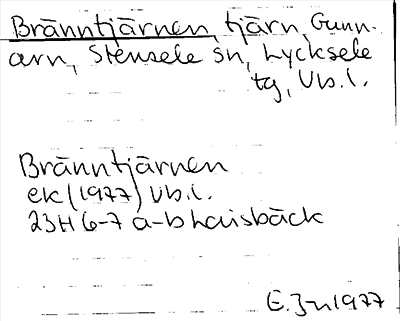 Bränntjärnen, tjärn, Gunn-
arn, Stensele sn, Lycksele
tg, Vb.l.
Bränntjärnen
ek (1977) Vb.l.
23H 6-7 a-b Laisbäck
E. Jn 1977